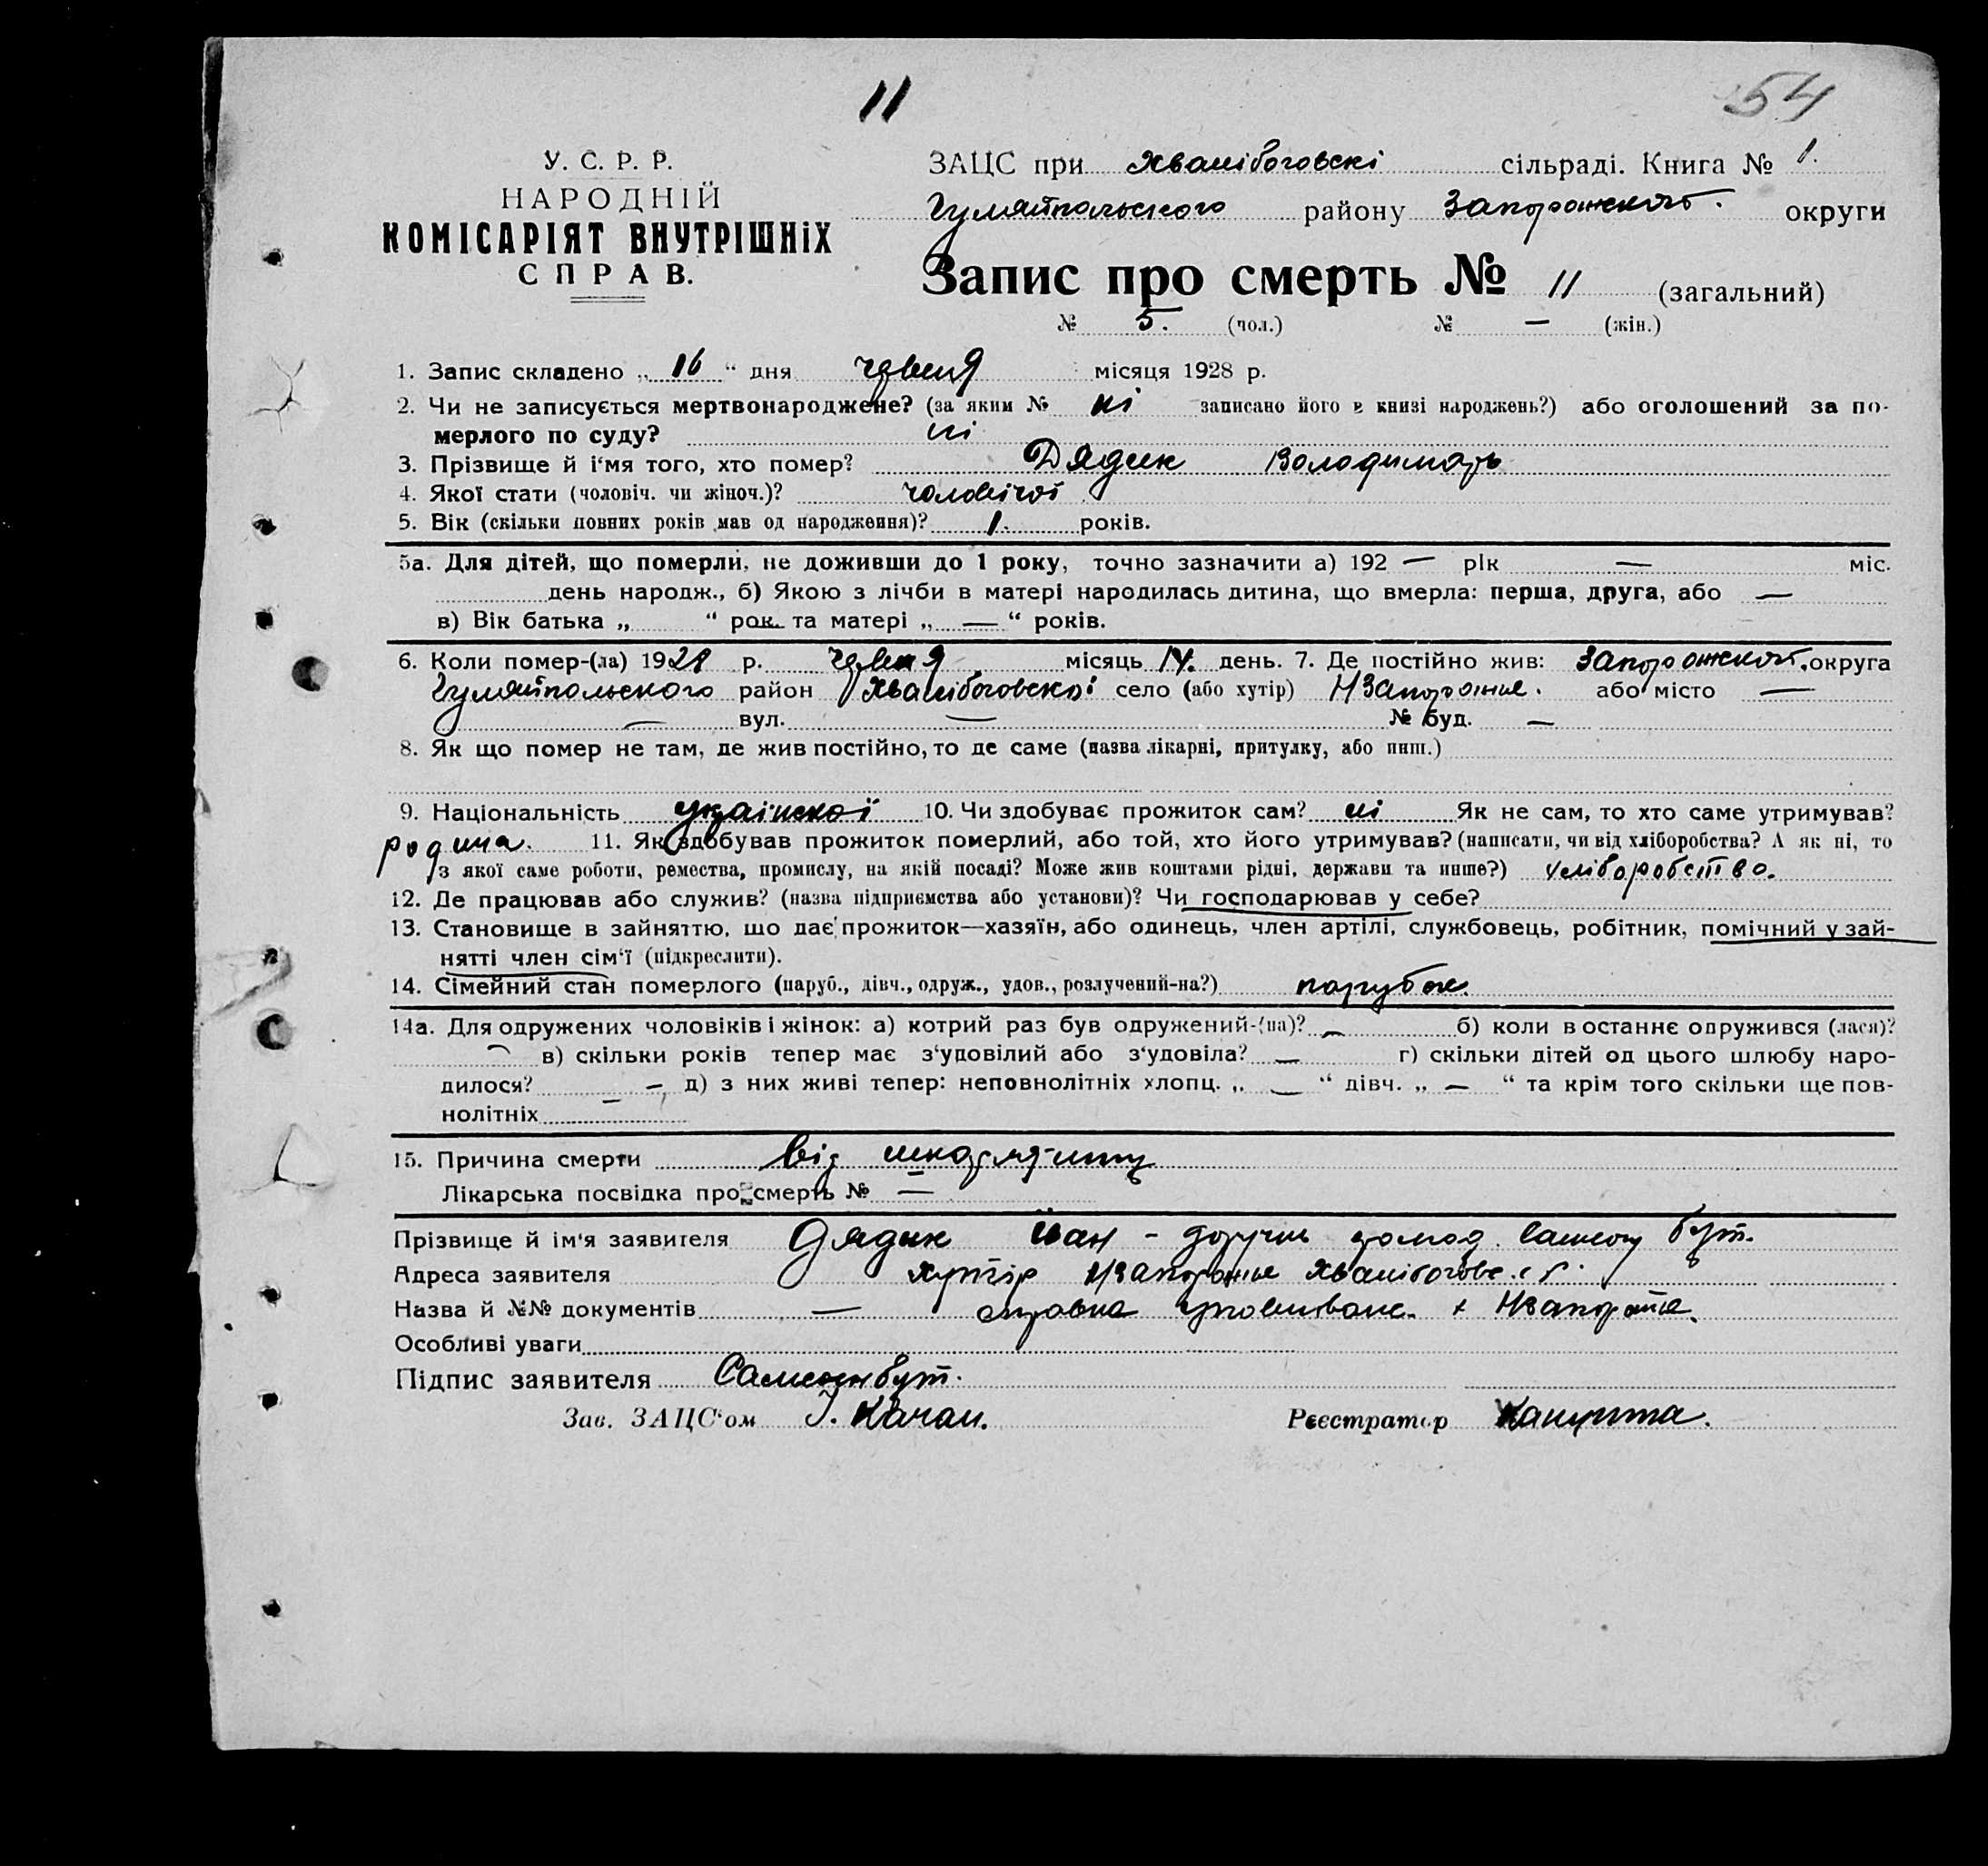 11
54
У. С. Р. Р.
НАРОДНІЙ
КОМІСАРІЯТ ВНУТРІШНІХ
СПРАВ.
ЗАЦС при Хвалібоговскі сільраді. Книга № 1.
Гуляйпольского району Запорожської округи
Запис про смерть № 11 (загальний)
№ 5. (чол.) № — (жін.)
1. Запис складено „ 16 “ дня червня місяця 1928 р.
2. Чи не записується мертвонароджене? (за яким № ні записано його в книзі народжень?) або оголошений за по-
мерлого по суду? ні
3. Прізвище й і‘мя того, хто помер? Дядик Володимирь
4. Якої стати (чоловіч. чи жіноч.)? чоловічої
5. Вік (скільки повних років мав од народження)? 1. років.
5а. Для дітей, що померли, не доживши до 1 року, точно зазначити а) 192 — рік — міс.
день народж., б) Якою з лічби в матері народилась дитина, що вмерла: перша, друга, або —
в) Вік батька „ “ рок. та матері „ — “ років.
6. Коли помер-(ла) 1928 р. червня місяць 14. день. 7. Де постійно жив: Запорожської округа
Гуляйпольского район Хвалібоговскої село (або хутір) НЗапорожье. або місто —
— вул. — № буд. —
8. Як що помер не там, де жив постійно, то де саме (назва лікарні, притулку, або инш.)
9. Національність украінскої 10. Чи здобуває прожиток сам? ні Як не сам, то хто саме утримував?
родина. 11. Як здобував прожиток померлий, або той, хто його утримував? (написати, чи від хліборобства? А як ні, то
з якої саме роботи, ремества, промислу, на якій посаді? Може жив коштами рідні, держави та инше?) хліборобство.
12. Де працював або служив? (назва підприємства або установи)? Чи господарював у себе?
13. Становище в зайняттю, що дає прожиток—хазяїн, або одинець, член артілі, службовець, робітник, помічний у зай-
нятті член сім‘ї (підкреслити).
14. Сімейний стан померлого (паруб., дівч., одруж., удов., розлучений-на?) парубок.
14а. Для одружених чоловіків і жінок: а) котрий раз був одружений-(на)? — б) коли в останнє одружився (лася)?
— в) скільки років тепер має з‘удовілий або з‘удовіла? — г) скільки дітей од цього шлюбу наро-
дилося? — д) з них живі тепер: неповнолітніх хлопц. „ — “ дівч. „ — “ та крім того скільки ще пов-
нолітніх —
15. Причина смерти від
Лікарська посвідка про смерть № —
Прізвище й ім‘я заявителя Дядик Іван -
Адреса заявителя хутір НЗапорожье
Назва й №№ документів —
Особливі уваги
Підпис заявителя
Зав. ЗАЦС‘ом І. Качан.
Реєстратор